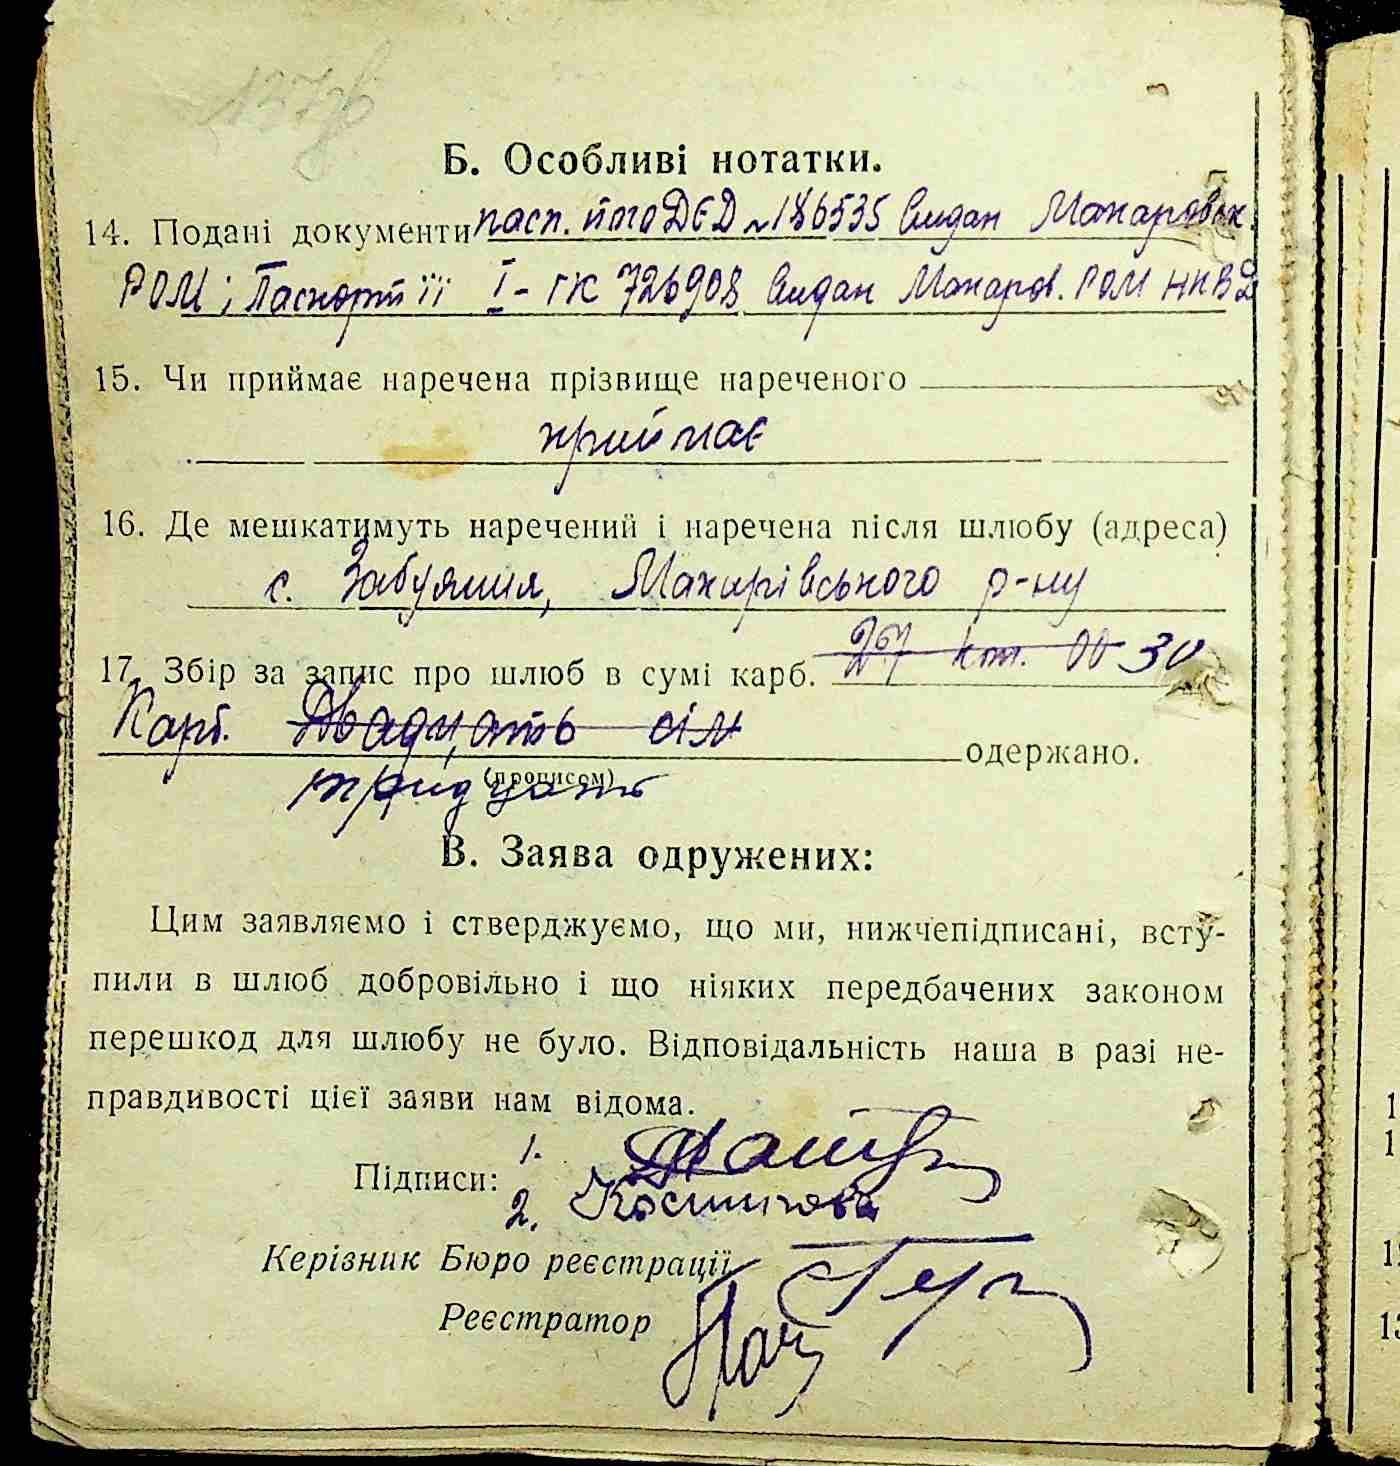 Б. Особливі нотатки.
14. Подані документи пасп. його ДЄД № 186535 видан Макаровск
РОМ; Паспорт її I-ГК 726908 видан Макаров. РОМ НКВД
15. Чи приймає наречена прізвище нареченого
приймає
16. Де мешкатимуть наречений і наречена після шлюбу (адреса)
с. Забуяння, Макарівського р-ну
17. Збір за запис про шлюб в сумі карб. 27 коп. 00 30
Карб. Двадцять сім одержано.
(прописом)
тридцять
В. Заява одружених:
Цим заявляємо і стверджуємо, що ми, нижчепідписані, всту-
пили в шлюб добровільно і що ніяких передбачених законом
перешкод для шлюбу не було. Відповідальність наша в разі не-
правдивості цієї заяви нам відома.
Підписи: 1.
2.
Керізник Бюро реєстрації
Реєстратор
1
1
12
13